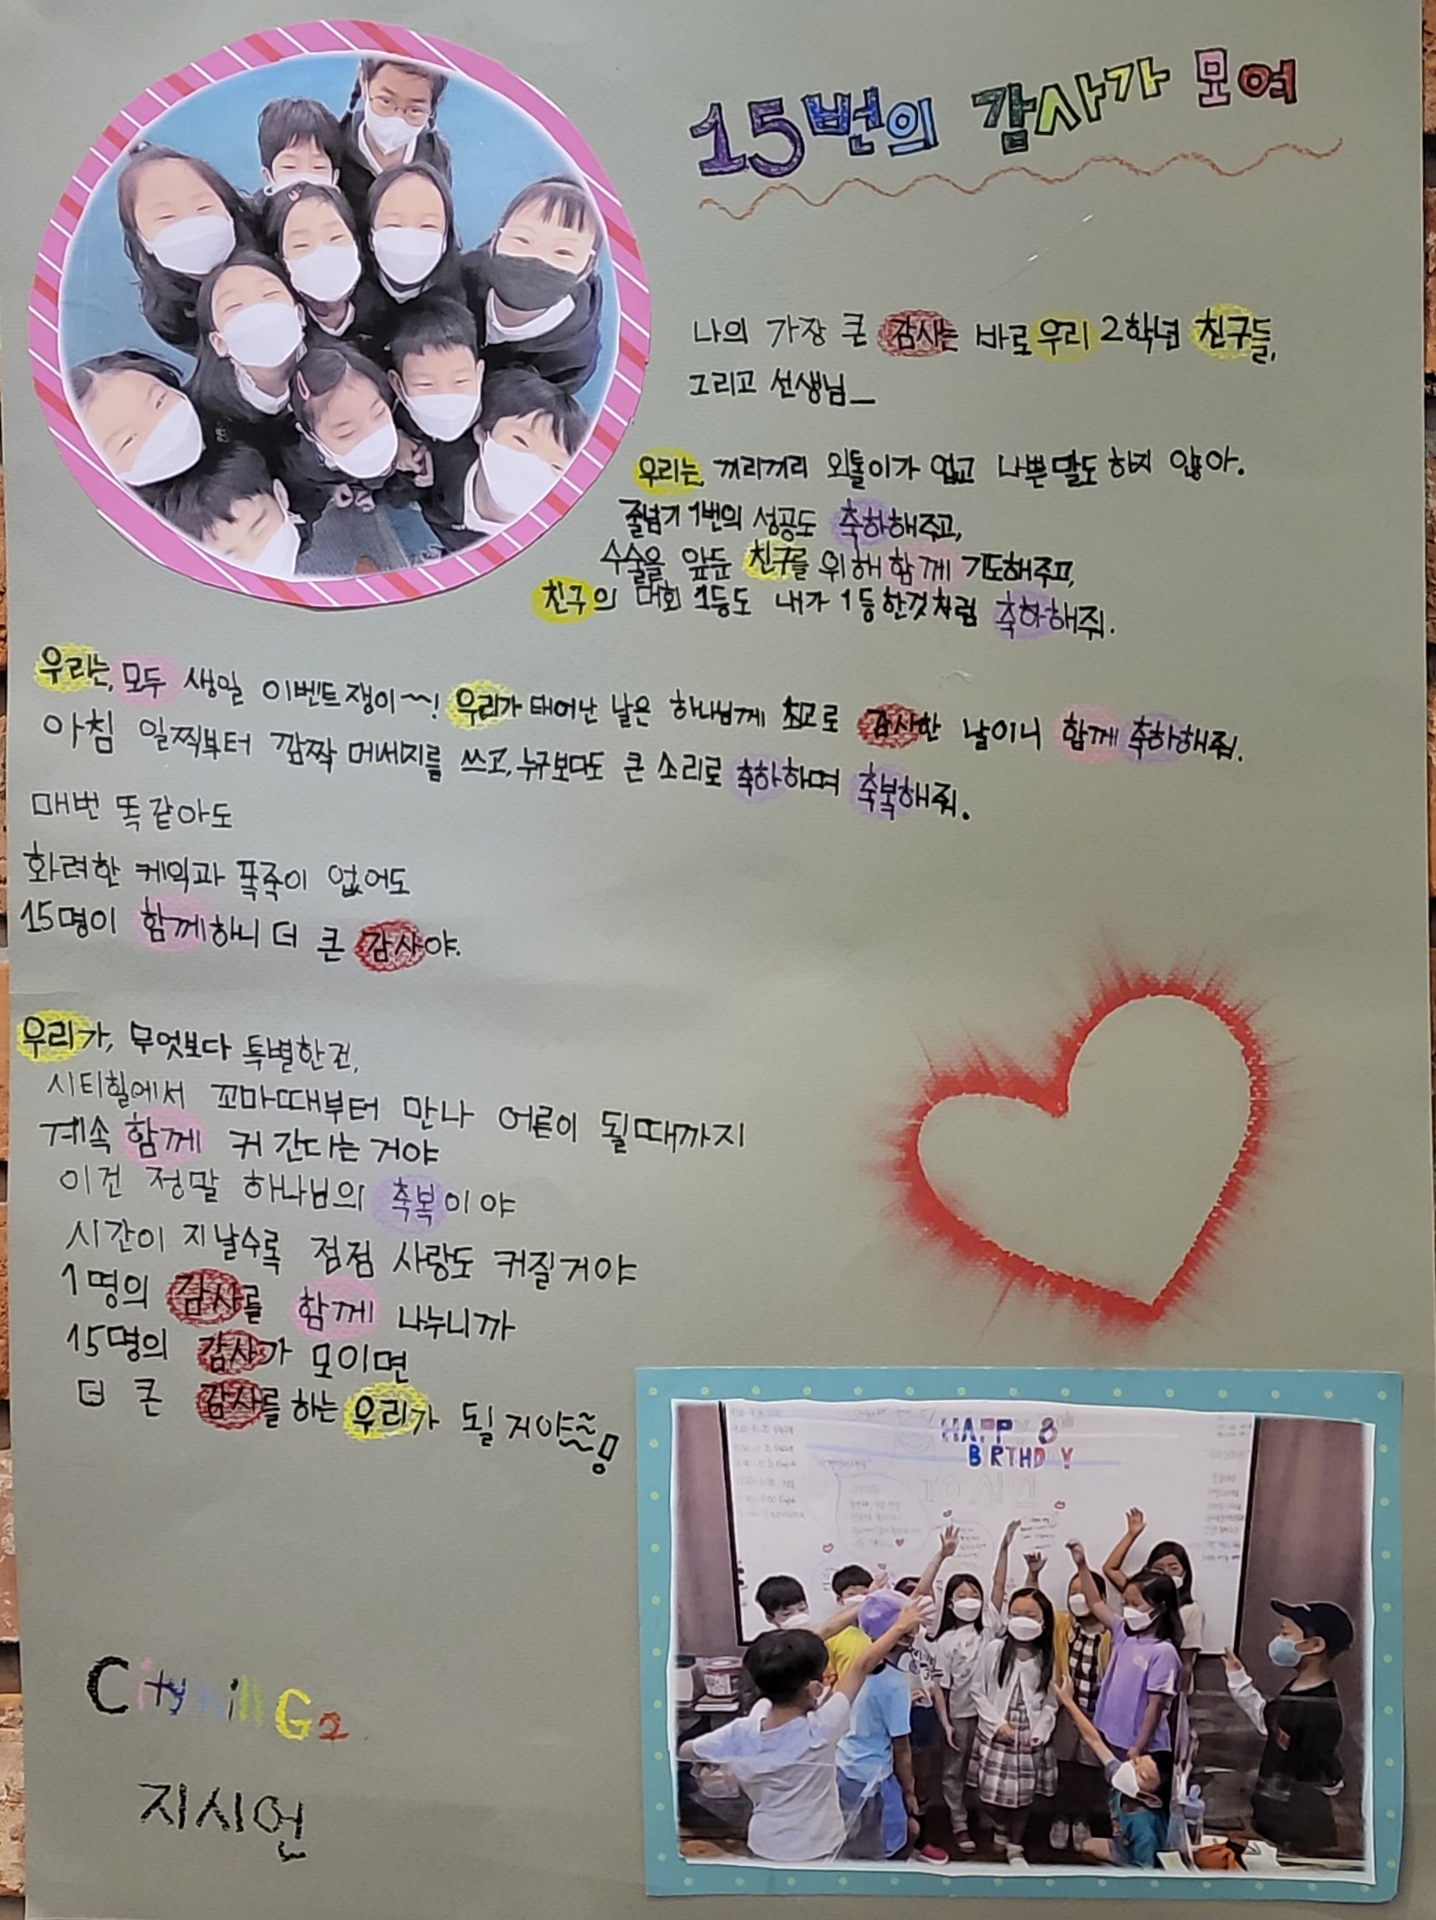 15번의 감사가 모여
나의 가장 큰 감사는 바로 우리 2학년 친구들,
그리고 선생님_
우리는, 끼리끼리 외톨이가 없고 나쁜 말도 하지 않아.
줄넘기 1번의 성공도 축하해주고,
수술을 앞둔 친구를 위해 함께 기도해주고,
친구의 대회 1등도 내가 1등한것처럼 축하해줘.
우리는, 모두 생일 이벤트쟁이~! 우리가 태어난 날은 하나님께 최고로 감사한 날이니 함께 축하해줘.
아침 일찍부터 깜짝 메세지를 쓰고, 누구보다도 큰 소리로 축하하며 축복해줘.
매번 똑같아도
화려한 케익과 폭죽이 없어도
15명이 함께하니 더 큰 감사야.
우리가, 무엇보다 특별한건,
시티힐에서 꼬마때부터 만나 어른이 될때까지
계속 함께 커 간다는 거야
이건 정말 하나님의 축복이야
시간이 지날수록 점점 사랑도 커질거야
1명의 감사를 함께 나누니까
15명의 감사가 모이면
더 큰 감사를 하는 우리가 될거야~!
HAPPY 8th
BIRTHDAY
TO 시언
Cityhill G2
지시언